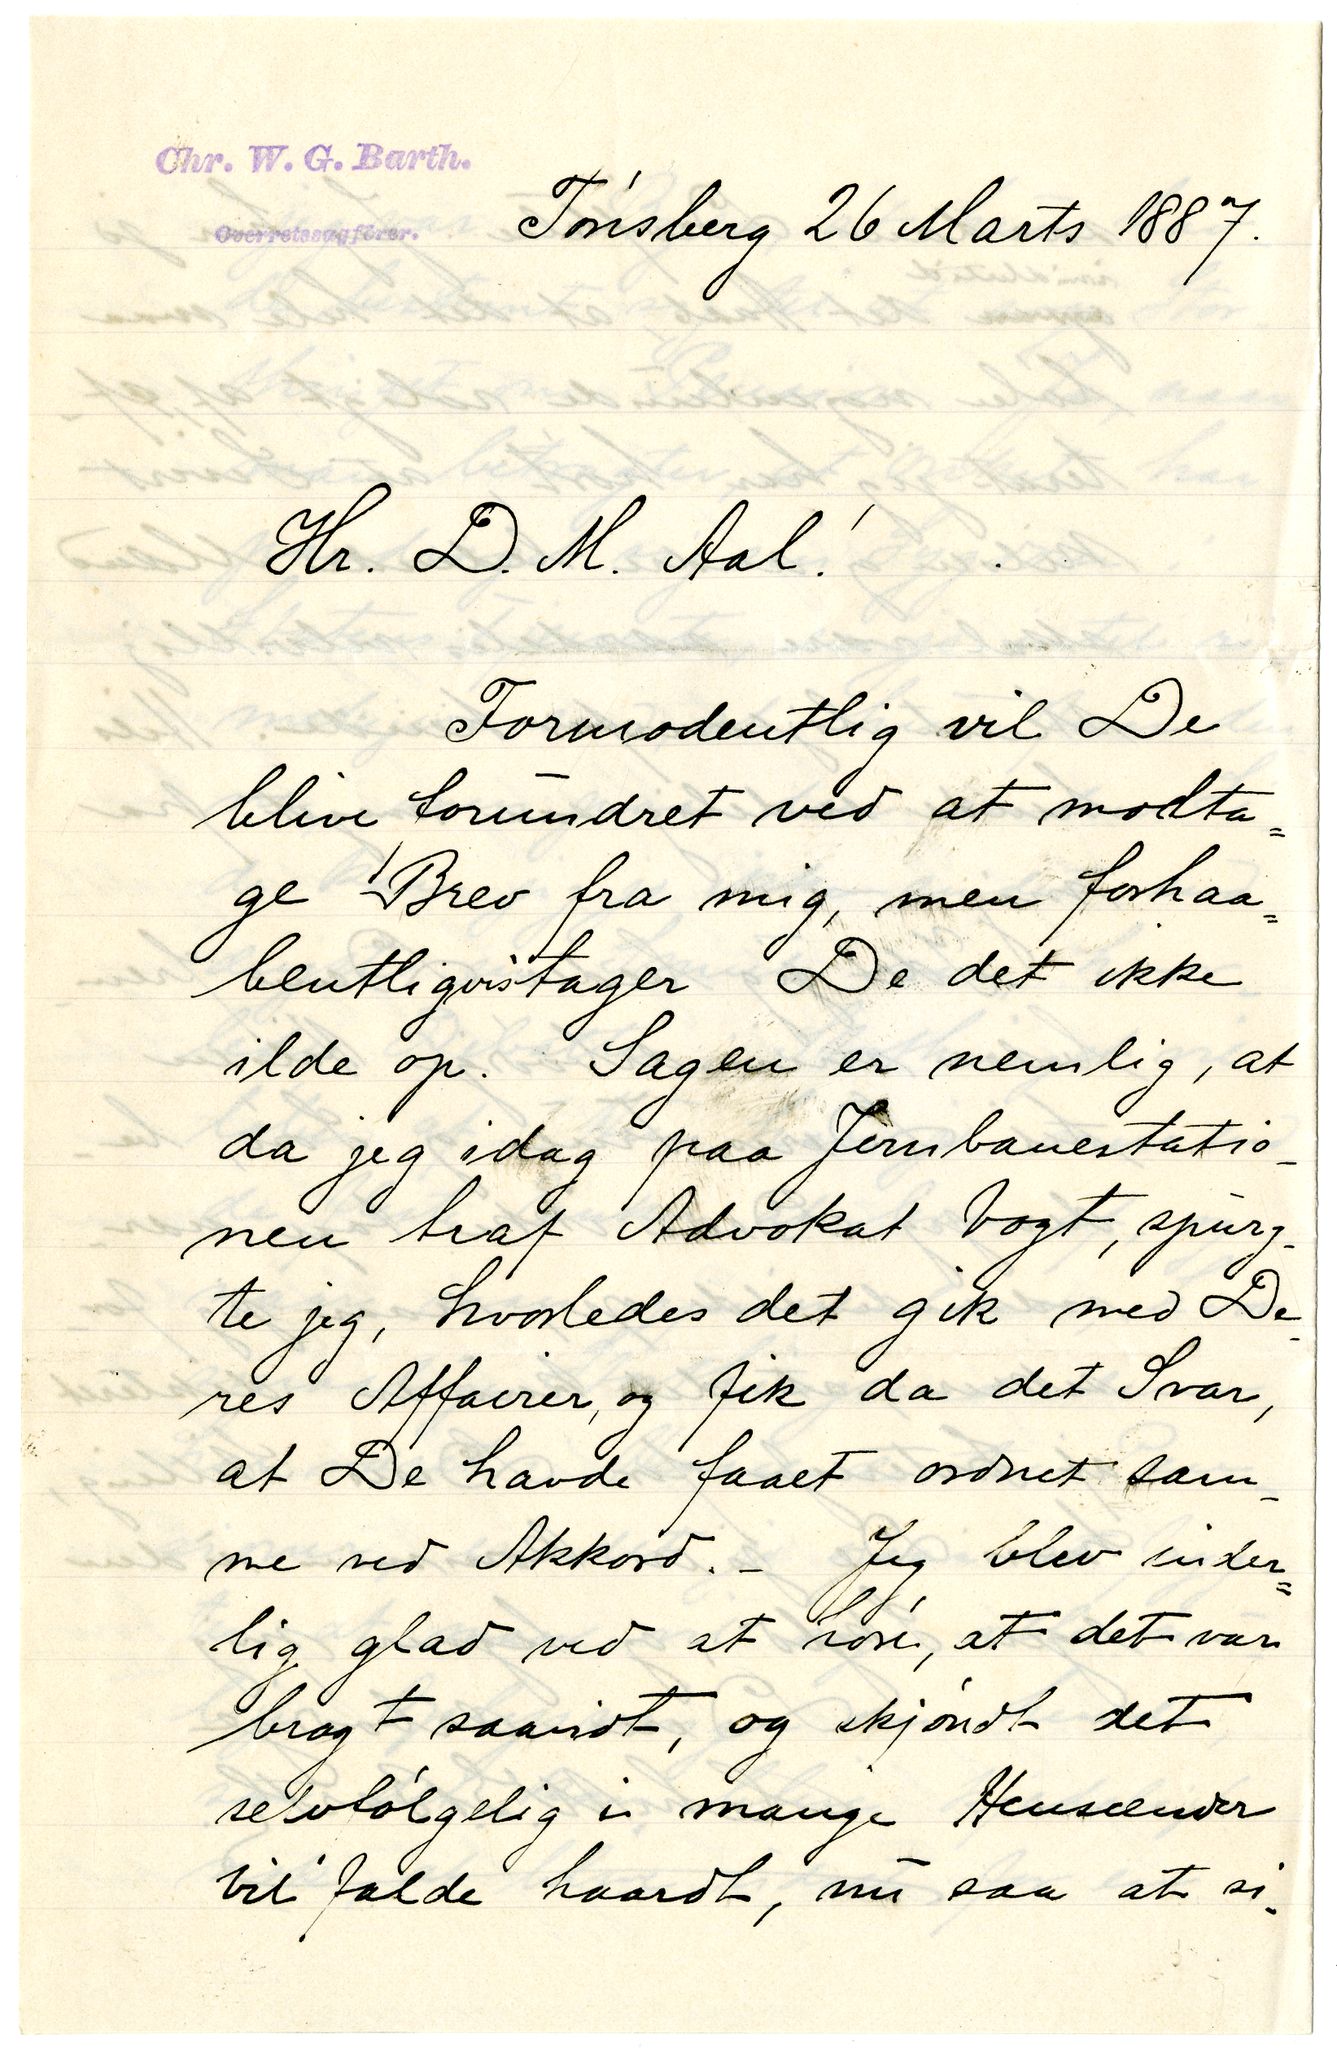 Chr. W. G. Barth.
Overretssagfører.
Tónsberg 26 Marts 1887.
Hr. D. M. Aal!
Formodentlig vil De
blive forundret ved at modta=
ge Brev fra mig, men forhaa=
bentligvis tager De det ikke
ilde op. Sagen er nemlig, at
da jeg idag paa Jernbanestatio-
nen traf Advokat Vogt, spurg-
te jeg, hvorledes det gik med De-
res Affairer, og fik da det Svar,
at De havde faaet ordnet sam-
me ved Akkord. – Jeg blev inder=
lig glad ved at hóre, at det var
bragt saavidt, og skjóndt det
selvfólgelig i mange Henseender
vil falde haardt, nu saa at si-